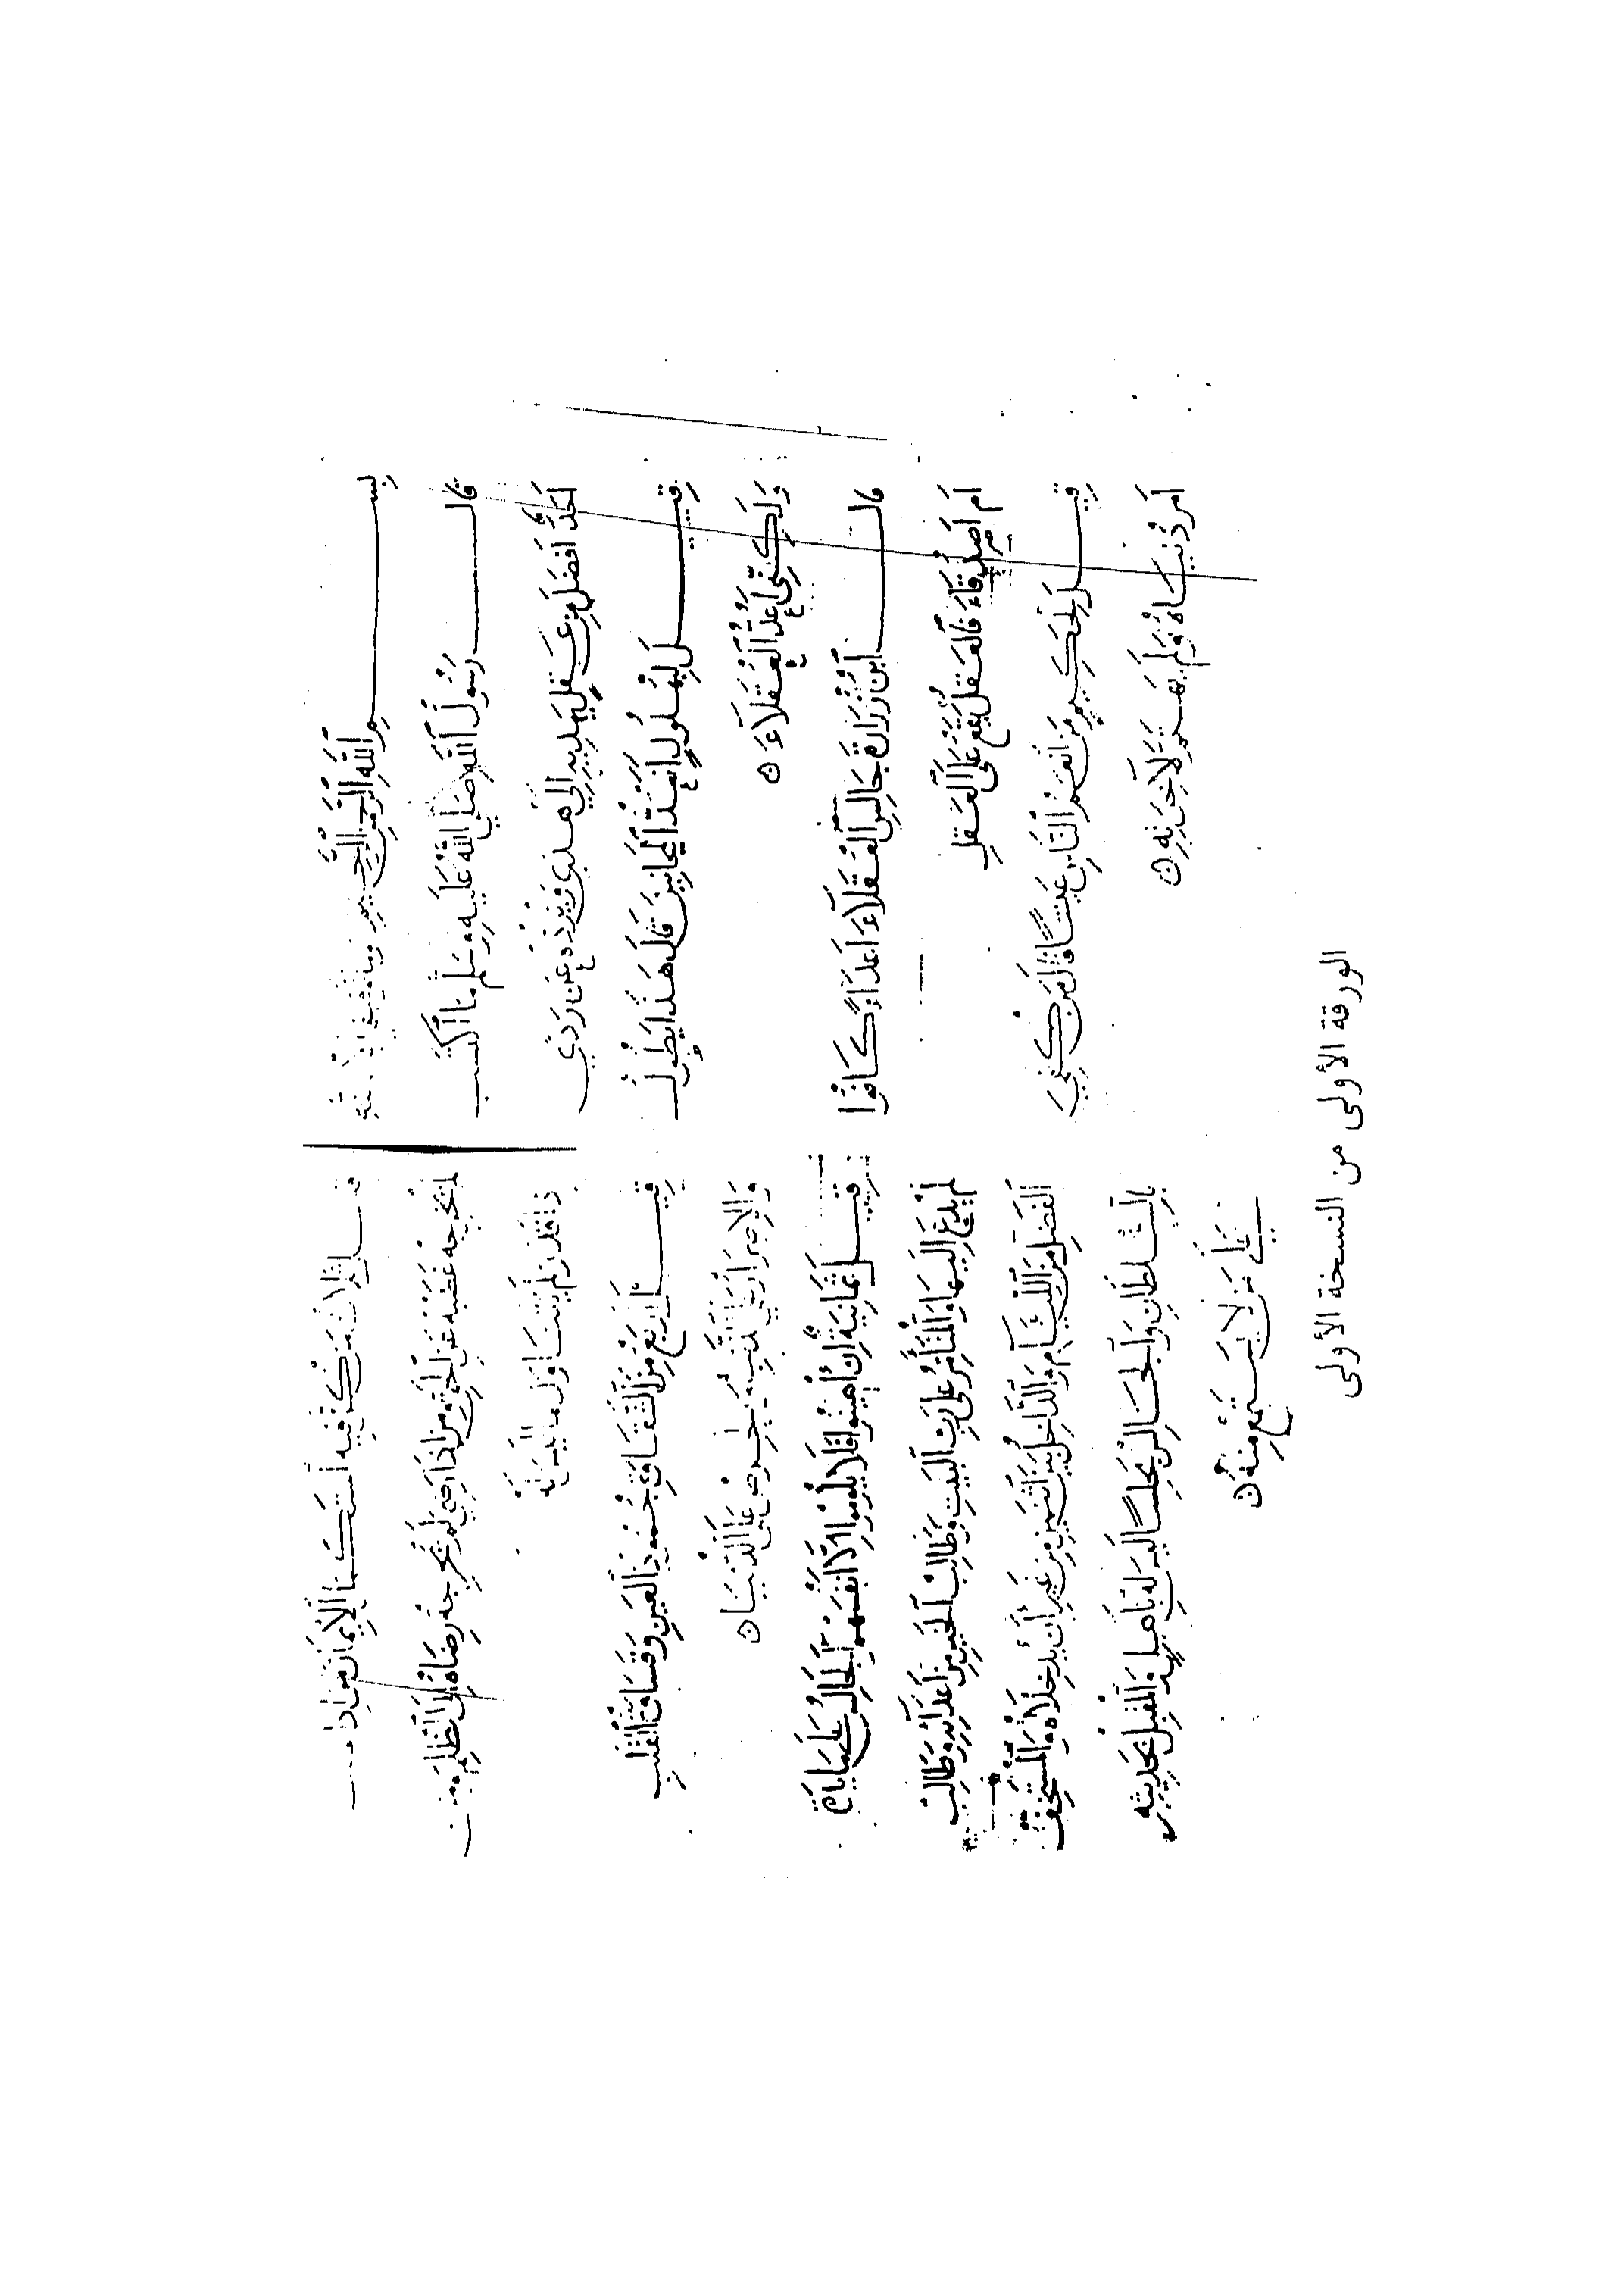 بسم الله الرحمن الرحيم
قال رسول الله صلى الله عليه وسلم ما اكتسب
أحد أفضل من عقل يهديه إلى هدى ويرده عن ردى
قيل لبهلول أتعد المجانين قال هذا يطول
ولكني أعد العقلاء ه
قال ابن زرارة جالس العقلاء أعداء كانوا
أم أصدقاء فالعقل يقع على العقل
قيل لحكيم من أنعم الناس عيشا قال من كفي
أمر دنياه ولم يهتم لآخرته ه
ثلاث من كن فيه استكمل الإيمان من إذا
لم يخرجه غضبه عن الحق ومن إذا رضي لم يخرجه رضاه إلى الظلم ومن
إذا قدر لم يتناول ما ليس له
قيل أربع من الشقاوة جمود العين وقساوة القلب
والإصرار على الذنب والحرص على الدنيا ه
قيل ثمانية إن أهينوا فلا يلوموا إلا أنفسهم الجالس على مائدة
لم يدع إليها والمتأمر على رب البيت وطالب الخير من أعدائه وطالب
الفضل من اللئام والداخل بين اثنين من غير أن يدخلاه والمستخف
بالسلطان والجالس مجلسا ليس له بأهل والمقبل بحديثه
على من لا يستمع منه ه
الورقة الأولى من النسخة الأولى